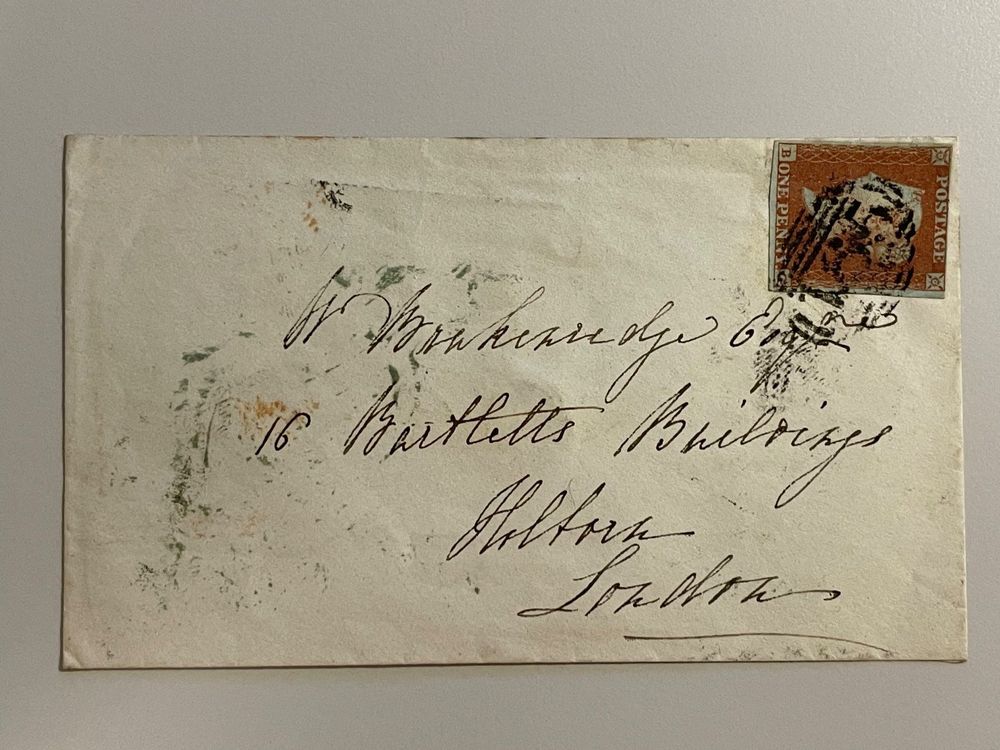 POSTAGE
B ONE PENNY
W Brakenridge Esqre
16 Bartletts Buildings
Holborn
London